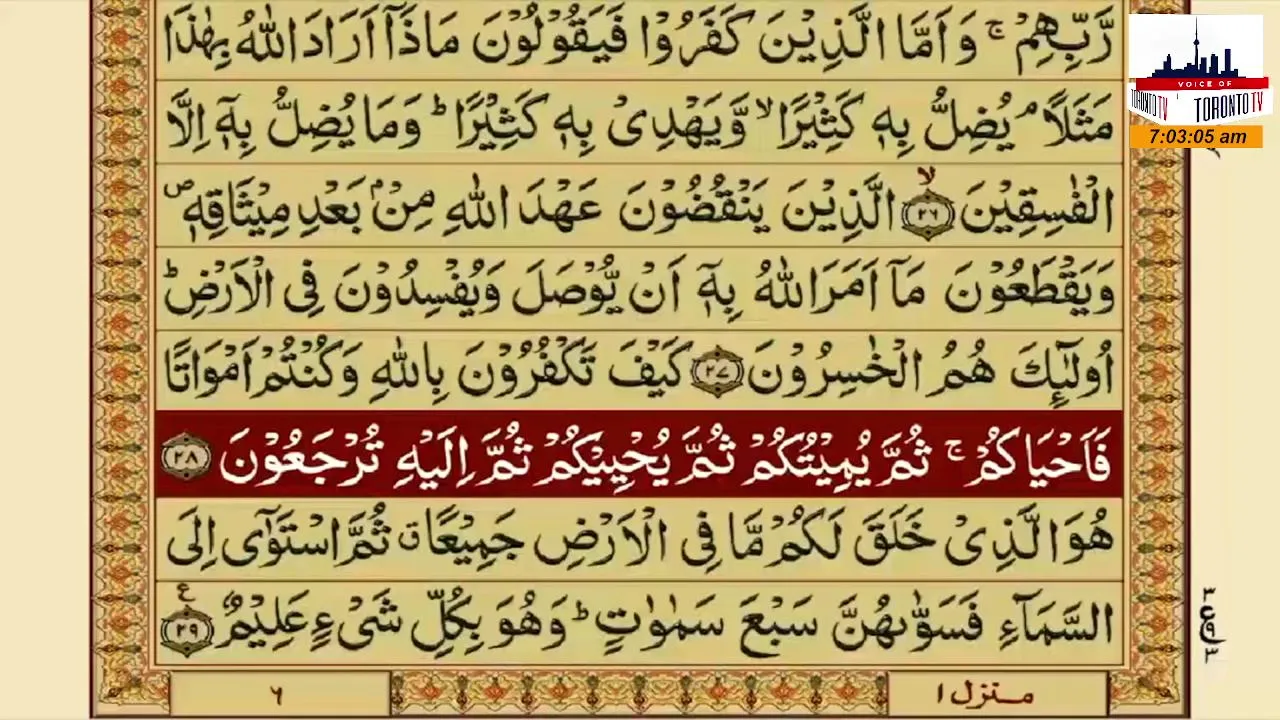 رَّبِّهِمْ ۚ وَاَمَّا الَّذِيْنَ كَفَرُوْا فَيَقُوْلُوْنَ مَاذَاۤ اَرَادَ اللّٰهُ بِهٰذَا
مَثَلًا ۘ يُضِلُّ بِهٖ كَثِيْرًا ۙ وَّيَهْدِيْ بِهٖ كَثِيْرًا ؕ وَمَا يُضِلُّ بِهٖۤ اِلَّا
الْفٰسِقِيْنَ ۙ ﴿۲۶﴾ الَّذِيْنَ يَنْقُضُوْنَ عَهْدَ اللّٰهِ مِنْۢ بَعْدِ مِيْثَاقِهٖ ۪
وَيَقْطَعُوْنَ مَاۤ اَمَرَ اللّٰهُ بِهٖۤ اَنْ يُّوْصَلَ وَيُفْسِدُوْنَ فِي الْاَرْضِ ؕ
اُولٰٓئِكَ هُمُ الْخٰسِرُوْنَ ﴿۲۷﴾ كَيْفَ تَكْفُرُوْنَ بِاللّٰهِ وَكُنْتُمْ اَمْوَاتًا
فَاَحْيَاكُمْ ۚ ثُمَّ يُمِيْتُكُمْ ثُمَّ يُحْيِيْكُمْ ثُمَّ اِلَيْهِ تُرْجَعُوْنَ ﴿۲۸﴾
هُوَ الَّذِيْ خَلَقَ لَكُمْ مَّا فِي الْاَرْضِ جَمِيْعًا ۗ ثُمَّ اسْتَوٰۤى اِلَى
السَّمَآءِ فَسَوّٰىهُنَّ سَبْعَ سَمٰوٰتٍ ؕ وَهُوَ بِكُلِّ شَيْءٍ عَلِيْمٌ ﴿۲۹﴾ ع
۶
منزل ۱
VOICE OF
TORONTO TV TORONTO TV
7:03:05 am